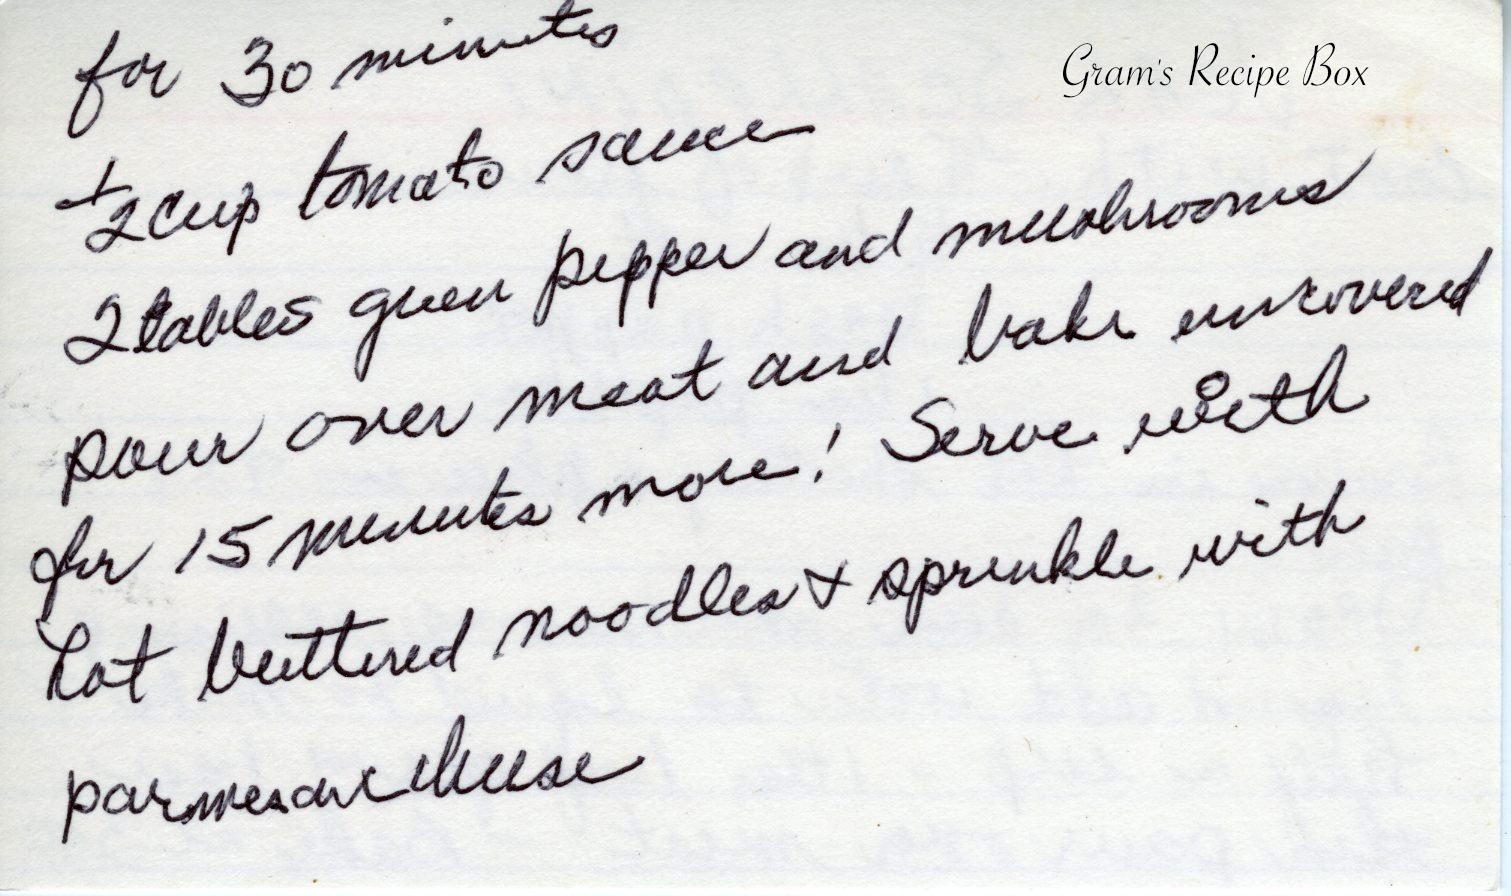 for 30 minutes
Gram's Recipe Box
½ cup tomato sauce
2 tables green pepper and mushrooms
pour over meat and bake uncovered
for 15 minutes more! Serve with
hot buttered noodles & sprinkle with
parmesan cheese